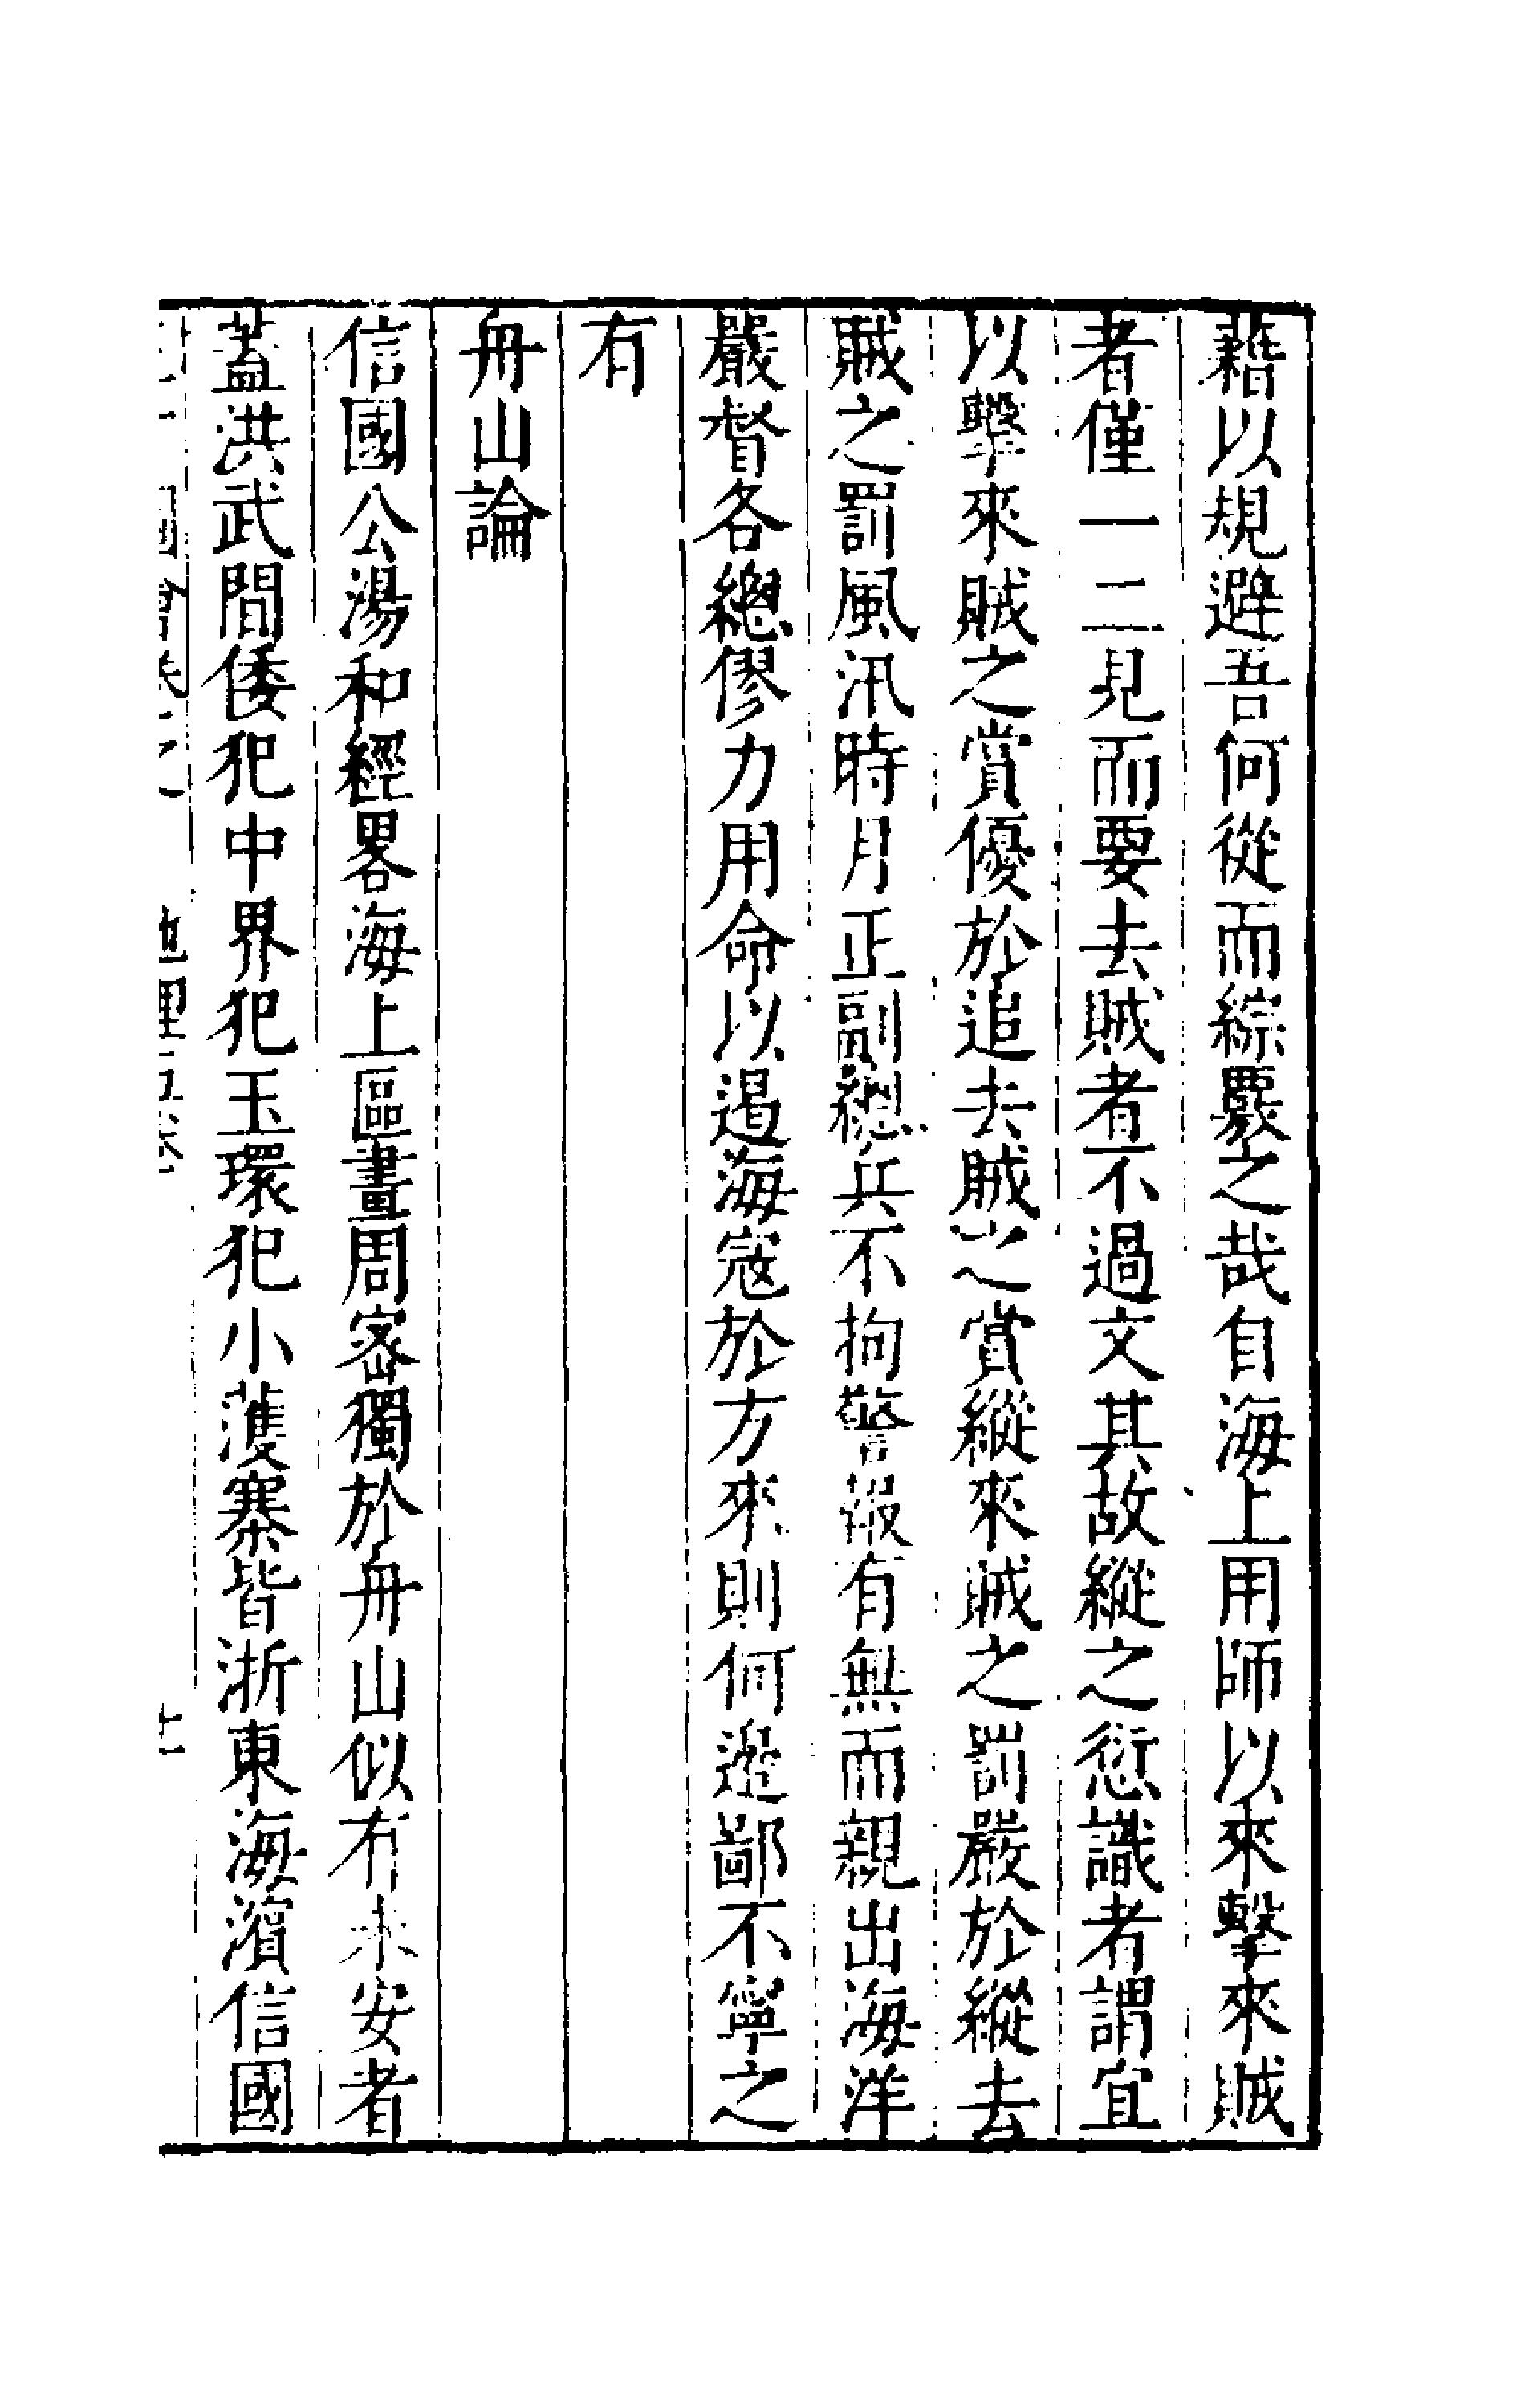 藉以規避吾何從而綜覈之哉自海上用師以來擊來賊
者僅一二見而要去賊者不過文其故縱之愆識者謂宜
以擊來賊之賞優於追去賊之賞縱來賊之罰嚴於縱去
賊之罰風汛時月正副總兵不拘警報有無而親出海洋
嚴督各總僇力用命以遏海寇於方來則何邊鄙不寧之
有
舟山論
信國公湯和經畧海上區畫周宻獨於舟山似有未安者
蓋洪武間倭犯中界犯玉環犯小濩寨皆浙東海濵信國
地理